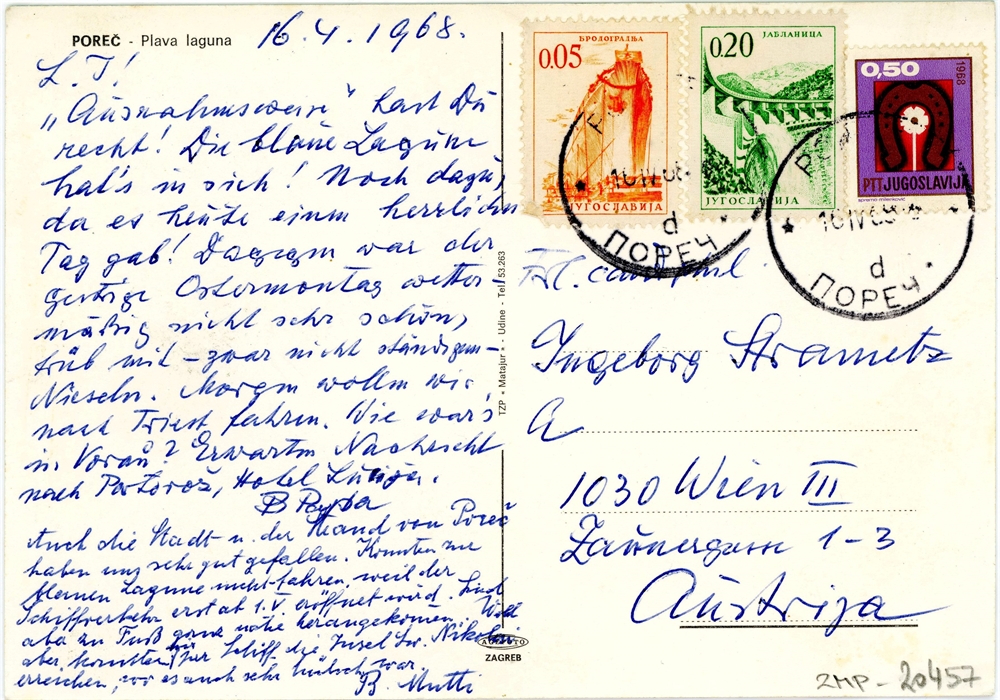 POREČ - Plava laguna
16.4.1968.
L. I!
„Ausnahmsweise" hast Du
recht! Die blaue Lagune
hat's in sich! Noch dazu,
da es heute einen herrlichen
Tag gab! Dagegen war der
gestrige Ostermontag wetter-
mäßig nicht sehr schön,
trüb mit – zwar nicht ständigem –
Nieseln. Morgen wollen wir
nach Triest fahren. Wie war's
in Vorau? Erwarten Nachricht
nach Portorož, Hotel Lucija.
B Papa
Auch die Stadt u. der Strand von Poreč
haben uns sehr gut gefallen. Konnten zur
blauen Lagune nicht fahren, weil der
Schiffverkehr erst ab 1.V. eröffnet wird. Sind
aber zu Fuß ganz nahe herangekommen. Wohl
aber konnten wir per Schiff die Insel Sv. Nikola
erreichen, wo es auch sehr hübsch war.
B. Mutti
TZP • Matajur - Udine - Tel. 53.263
ZAGREB
0.05
БРОДОГРАДЊА
ЈУГОСЛАВИЈА
0.20
ЈАБЛАНИЦА
ЈУГОСЛАВИЈА
0,50
1968
PTT JUGOSLAVIJA
16 IV 68
d
ПОРЕЧ
16 IV 68
d
ПОРЕЧ
Frl. cand. phil.
Ingeborg Strametz
A
1030 Wien III
Zaunergasse 1-3
Austrija
2MP - 20457